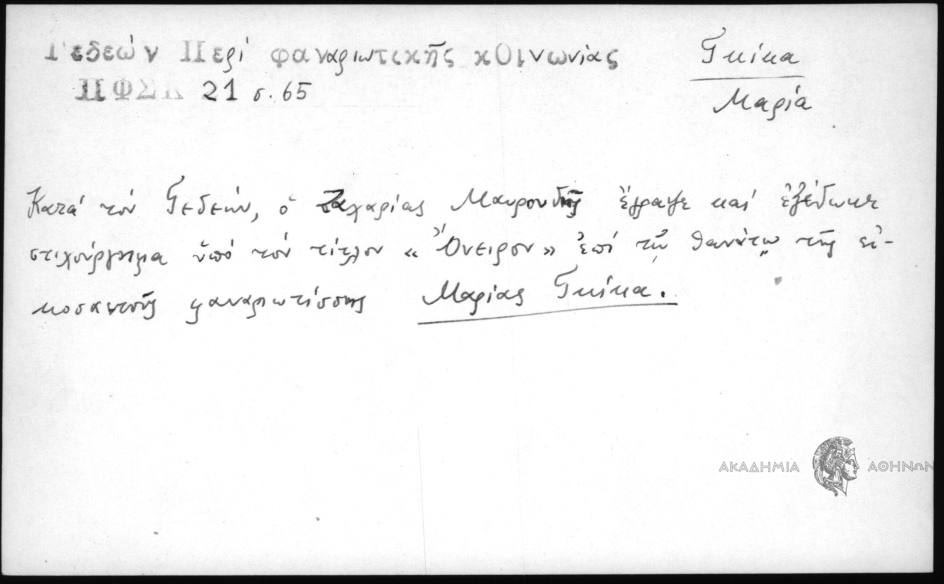 Γεδεών Περί φαναριωτικῆς κΟΙνωνίας
ΠΦΣΚ 21 σ. 65
Γκίκα
Μαρία
Κατά τόν Γεδεών, ὁ Ζαχαρίας Μαυρουδῆς ἔγραψε καί ἐξέδωκε
στιχούργημα ὑπό τόν τίτλον «Ὄνειρον» ἐπί τῷ θανάτῳ τῆς εἰ-
κοσαετοῦς φαναριωτίσσης Μαρίας Γκίκα.
ΑΚΑΔΗΜΙΑ ΑΘΗΝΩΝ